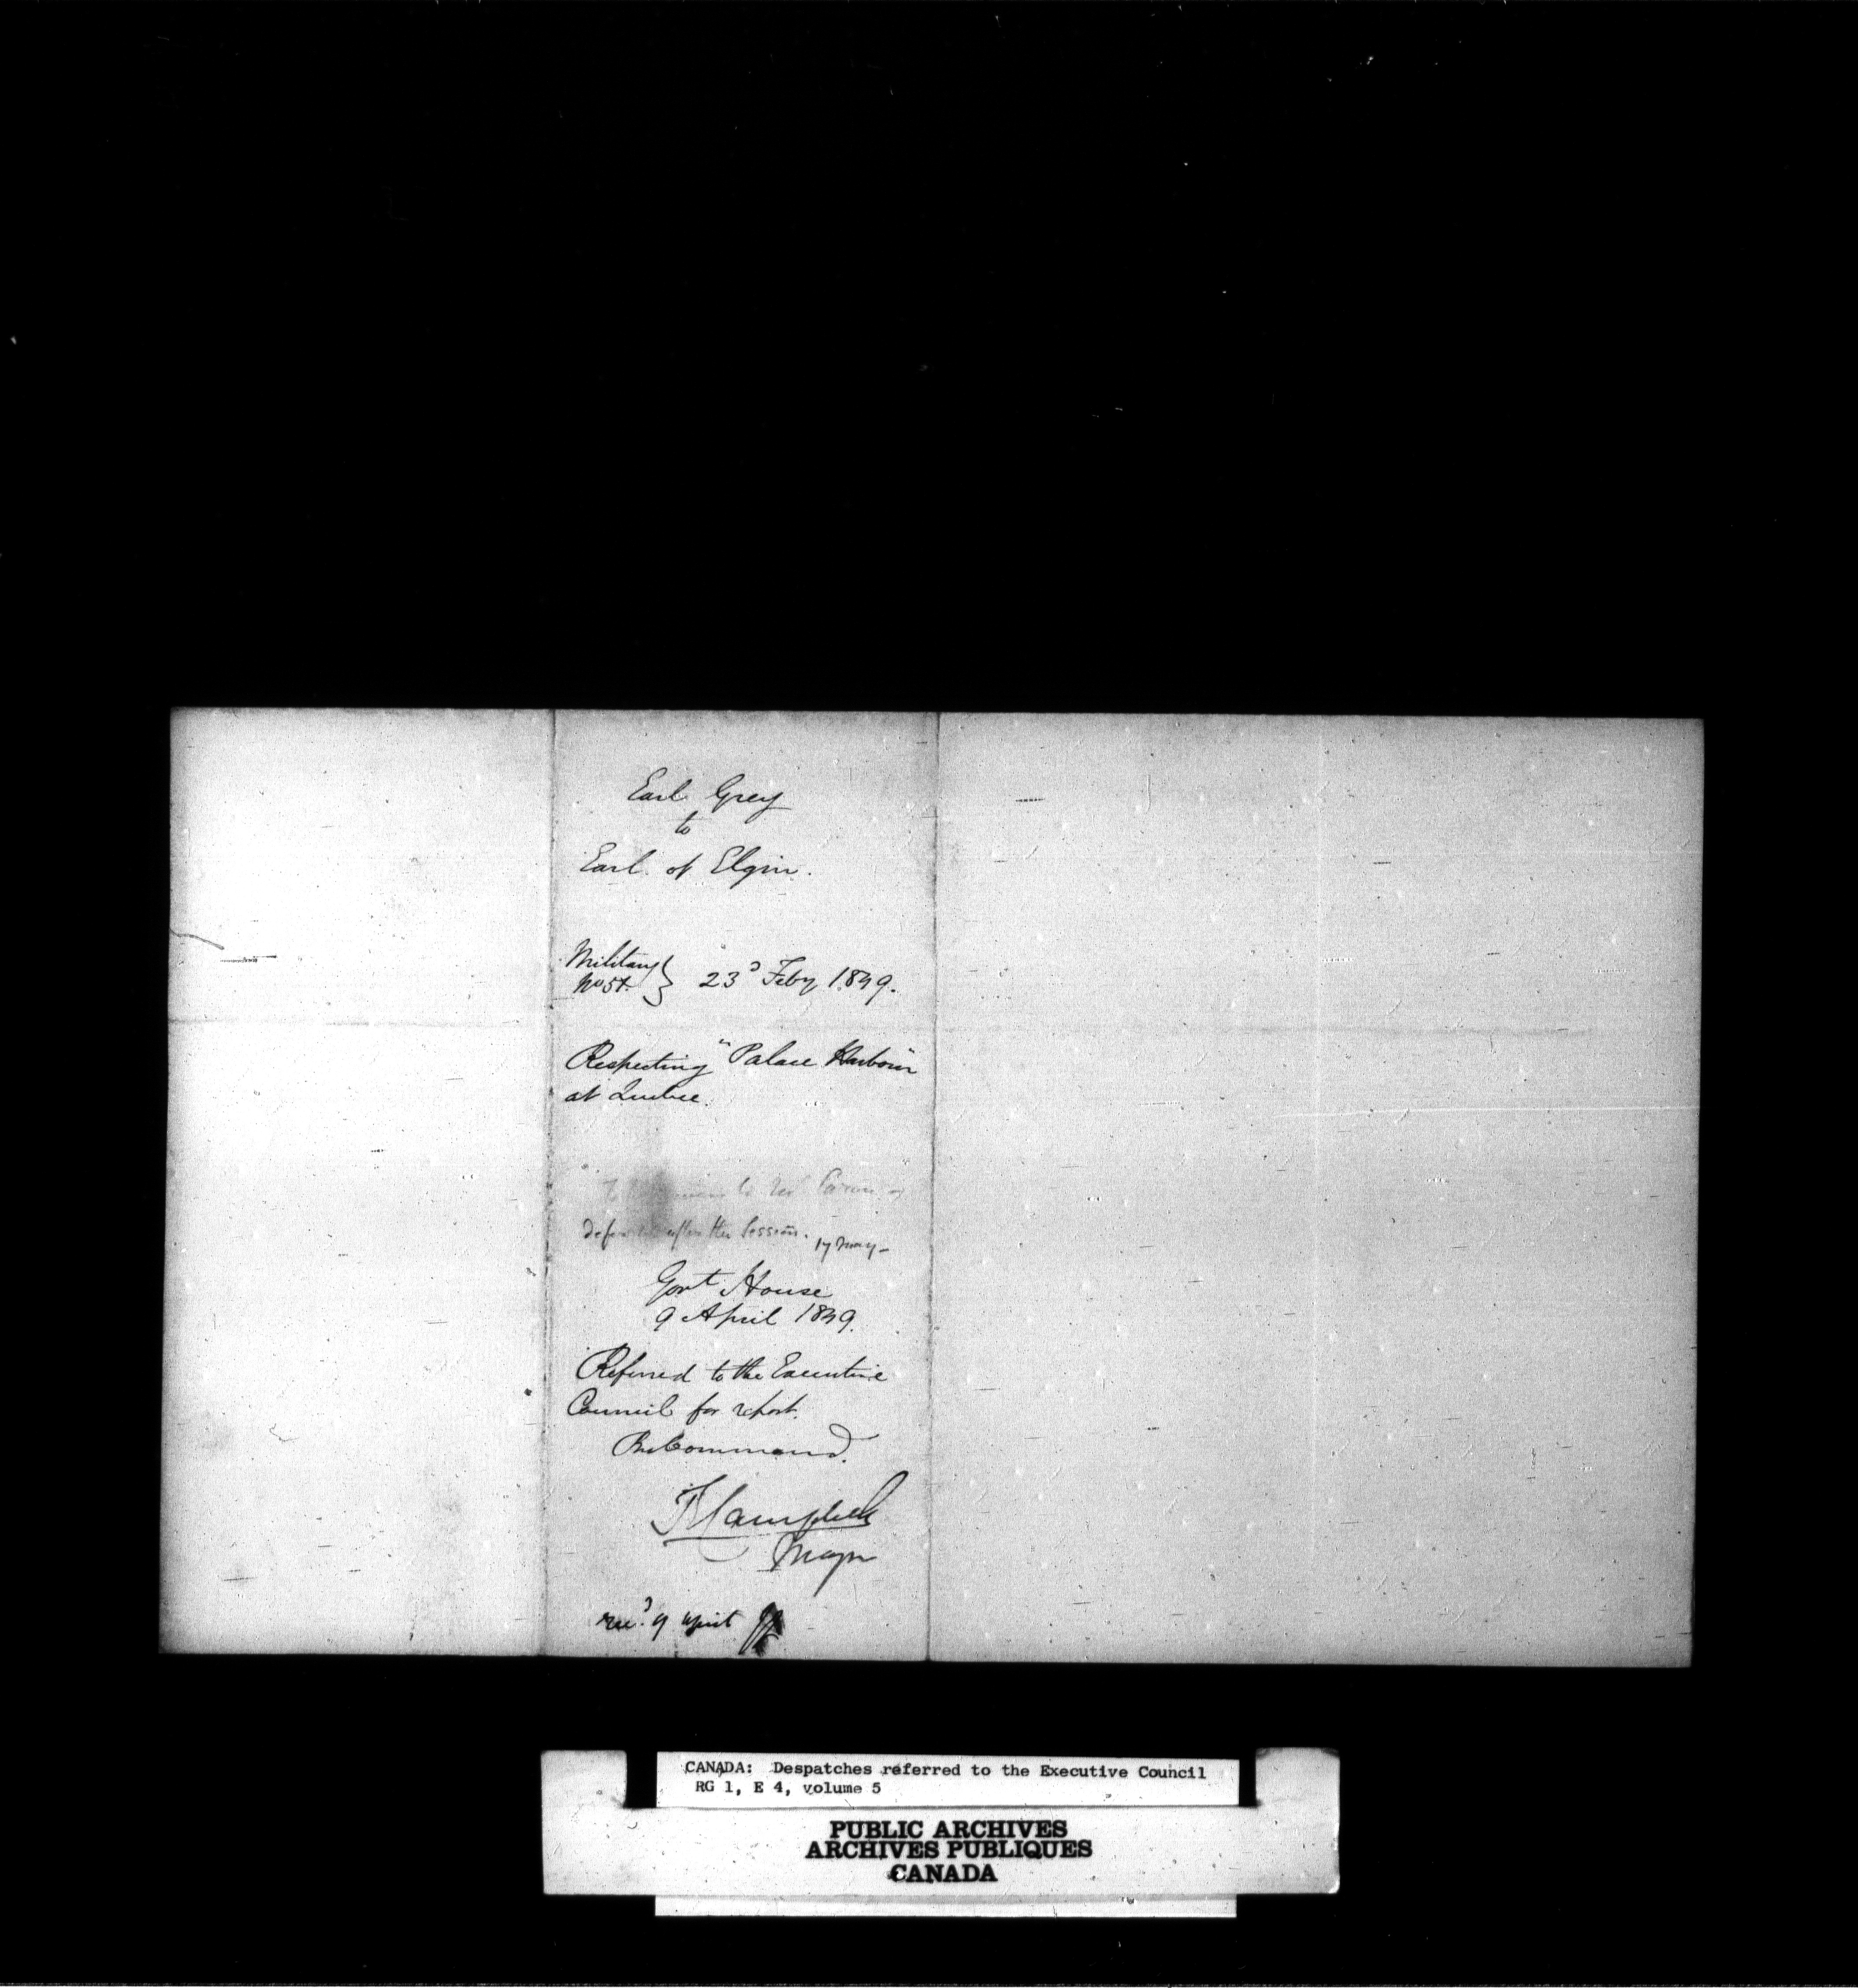 Earl Grey
to
Earl of Elgin.
Military
No 51.
23d Feby 1849.
Respecting "Palace Harbour"
at Quebec.
after the Session. 17 May -
Govt House
9 April 1849.
Referred to the Executive
Council for report.
By Command.
TECampbell
Major
recd. 9 April
CANADA: Despatches referred to the Executive Council
RG 1, E 4, volume 5
PUBLIC ARCHIVES
ARCHIVES PUBLIQUES
CANADA